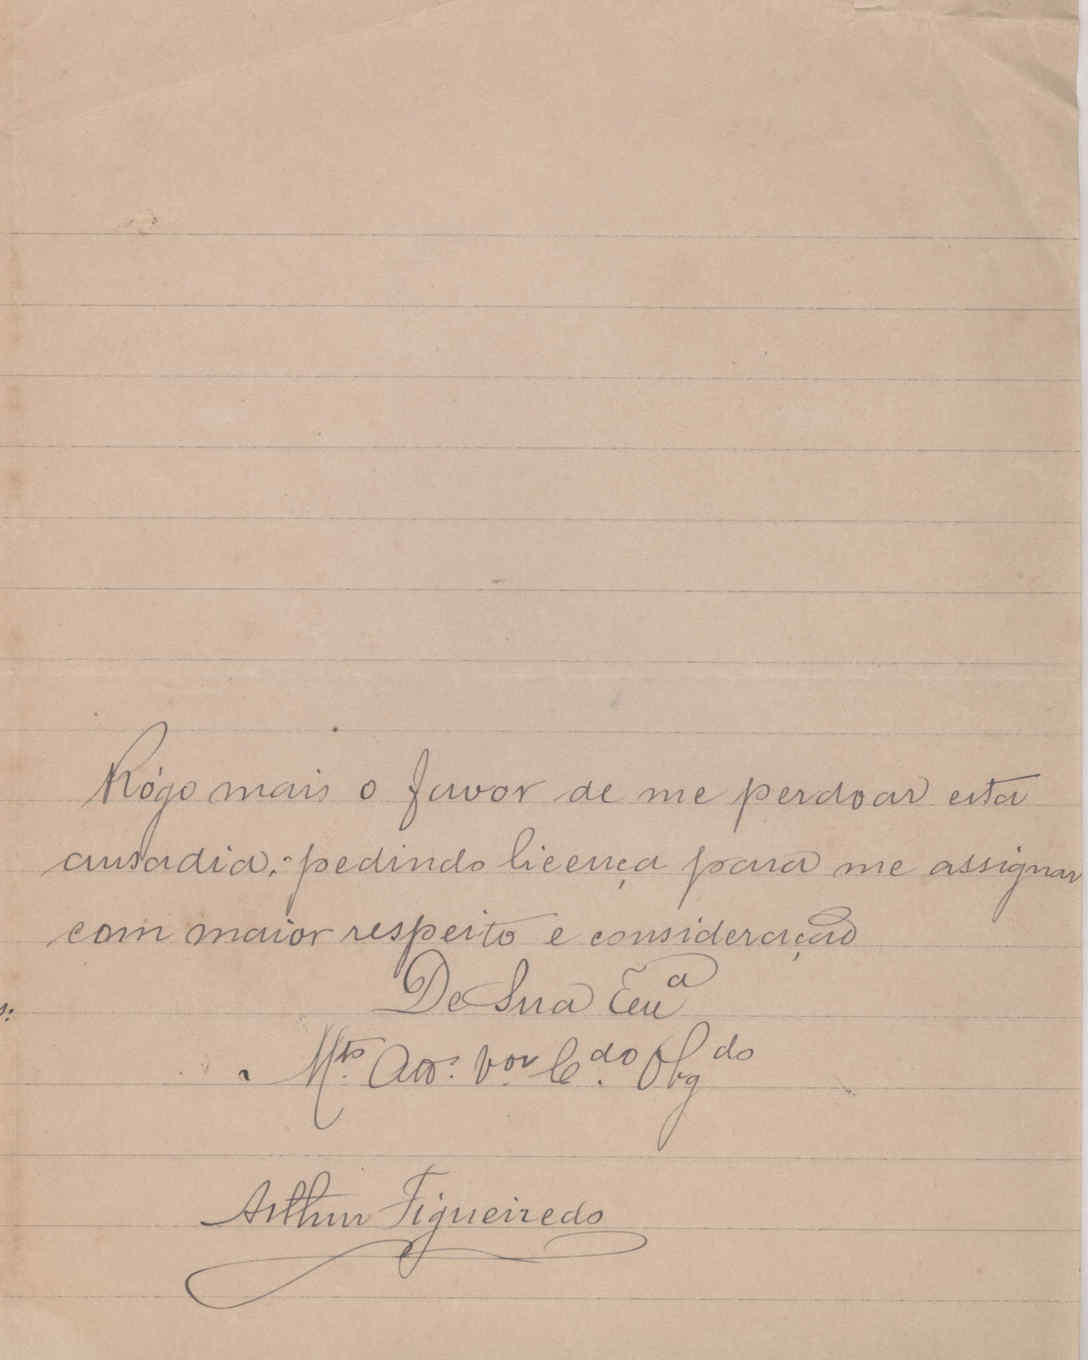 Rógo mais o favor de me perdoar esta
ausadia, pedindo licença para me assignar
com maior respeito e consideração
De Sua Exª
Mto. Att. Vor. Cdo. Obgdo
Arthur Figueiredo